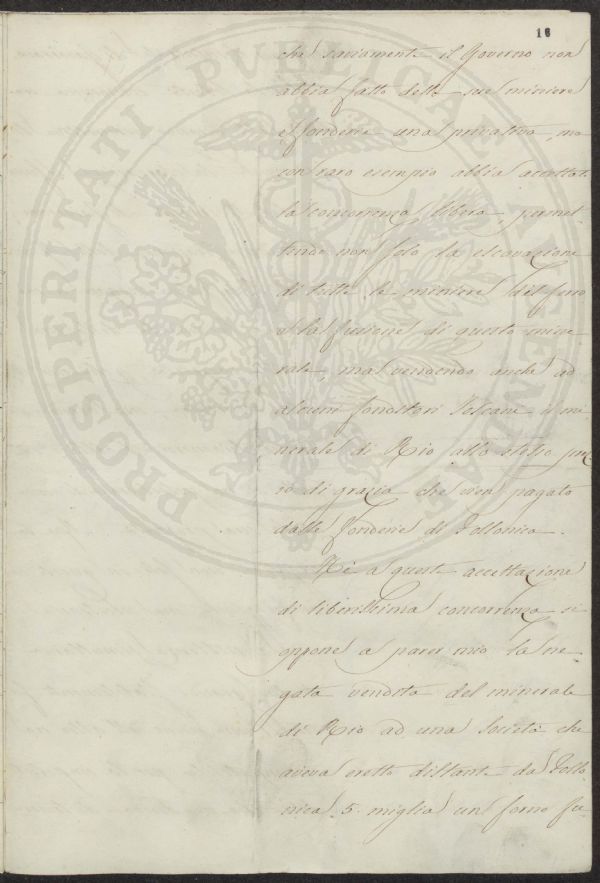 16
che saviamente il Governo non
abbia fatto delle sue miniere
e fonderie una privativa, ma
con raro esempio abbia accettato
la concorrenza libera, permet-
tendo non solo la escavazione
di tutte le miniere del ferro
e la fusione di questo mine-
rale, ma vendendo anche ad
alcuni fonditori Toscani il mi
nerale di Rio allo stesso prez
zo di grazia che vien pagato
dalle fonderie di Follonica.
Nè a questa accettazione
di liberissima concorrenza si
oppone a parer mio la ne
gata vendita del minerale
di Rio ad una Società che
aveva eretto distante da Follo
nica 5 miglia un forno fu-
PROSPERITATI PVBLICAE AVGENDAE